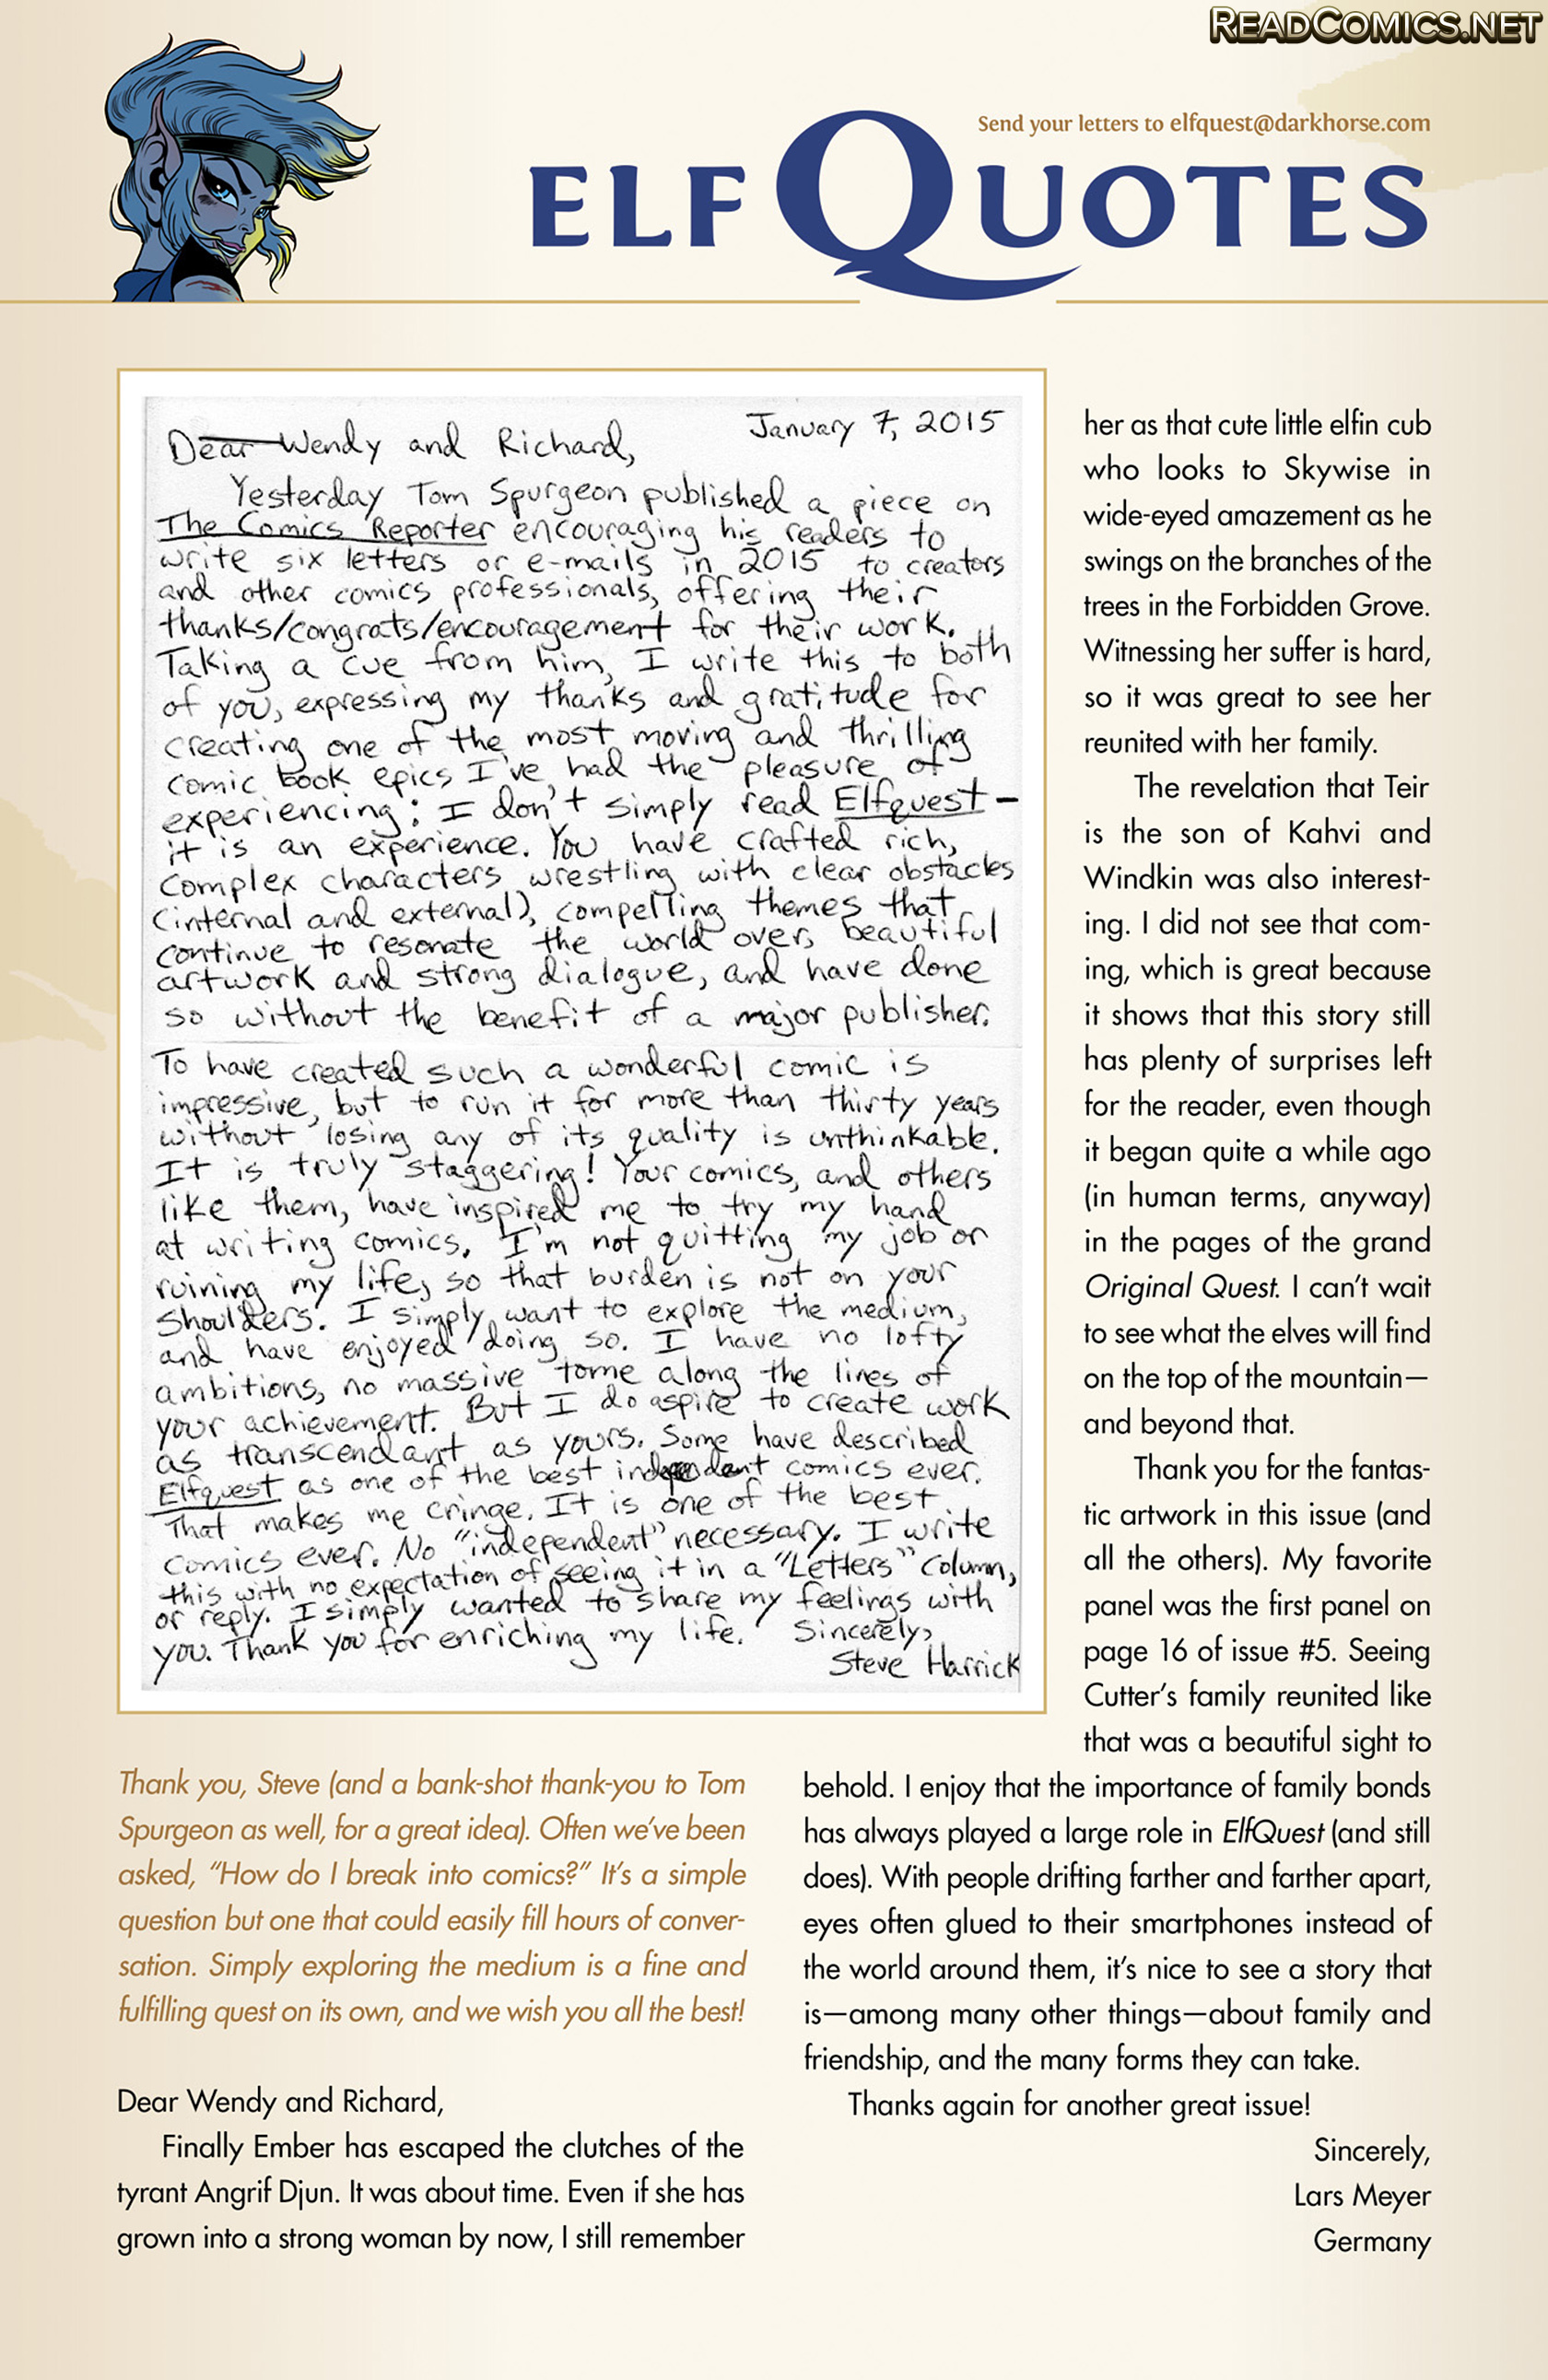 READCOMICS.NET
Send your letters to elfquest@darkhorse.com
ELFQUOTES
January 7, 2015
Dear Wendy and Richard,
Yesterday Tom Spurgeon published a piece on
The Comics Reporter encouraging his readers to
write six letters or e-mails in 2015 to creators
and other comics professionals, offering their
thanks/congrats/encouragement for their work.
Taking a cue from him, I write this to both
of you, expressing my thanks and gratitude for
creating one of the most moving and thrilling
comic book epics I've had the pleasure of
experiencing: I don't simply read Elfquest—
it is an experience. You have crafted rich,
complex characters wrestling with clear obstacles
(internal and external), compelling themes that
continue to resonate the world over, beautiful
artwork and strong dialogue, and have done
so without the benefit of a major publisher.
To have created such a wonderful comic is
impressive, but to run it for more than thirty years
without losing any of its quality is unthinkable.
It is truly staggering! Your comics, and others
like them, have inspired me to try my hand
at writing comics. I'm not quitting my job or
ruining my life, so that burden is not on your
shoulders. I simply want to explore the medium,
and have enjoyed doing so. I have no lofty
ambitions, no massive tome along the lines of
your achievement. But I do aspire to create work
as transcendant as yours. Some have described
Elfquest as one of the best independent comics ever.
That makes me cringe. It is one of the best
comics ever. No "independent" necessary. I write
this with no expectation of seeing it in a "Letters" column,
or reply. I simply wanted to share my feelings with
you. Thank you for enriching my life. Sincerely,
Steve Harrick
Thank you, Steve (and a bank-shot thank-you to Tom
Spurgeon as well, for a great idea). Often we've been
asked, "How do I break into comics?" It's a simple
question but one that could easily fill hours of conver-
sation. Simply exploring the medium is a fine and
fulfilling quest on its own, and we wish you all the best!
Dear Wendy and Richard,
Finally Ember has escaped the clutches of the
tyrant Angrif Djun. It was about time. Even if she has
grown into a strong woman by now, I still remember
her as that cute little elfin cub
who looks to Skywise in
wide-eyed amazement as he
swings on the branches of the
trees in the Forbidden Grove.
Witnessing her suffer is hard,
so it was great to see her
reunited with her family.
The revelation that Teir
is the son of Kahvi and
Windkin was also interest-
ing. I did not see that com-
ing, which is great because
it shows that this story still
has plenty of surprises left
for the reader, even though
it began quite a while ago
(in human terms, anyway)
in the pages of the grand
Original Quest. I can't wait
to see what the elves will find
on the top of the mountain—
and beyond that.
Thank you for the fantas-
tic artwork in this issue (and
all the others). My favorite
panel was the first panel on
page 16 of issue #5. Seeing
Cutter's family reunited like
that was a beautiful sight to
behold. I enjoy that the importance of family bonds
has always played a large role in ElfQuest (and still
does). With people drifting farther and farther apart,
eyes often glued to their smartphones instead of
the world around them, it's nice to see a story that
is—among many other things—about family and
friendship, and the many forms they can take.
Thanks again for another great issue!
Sincerely,
Lars Meyer
Germany